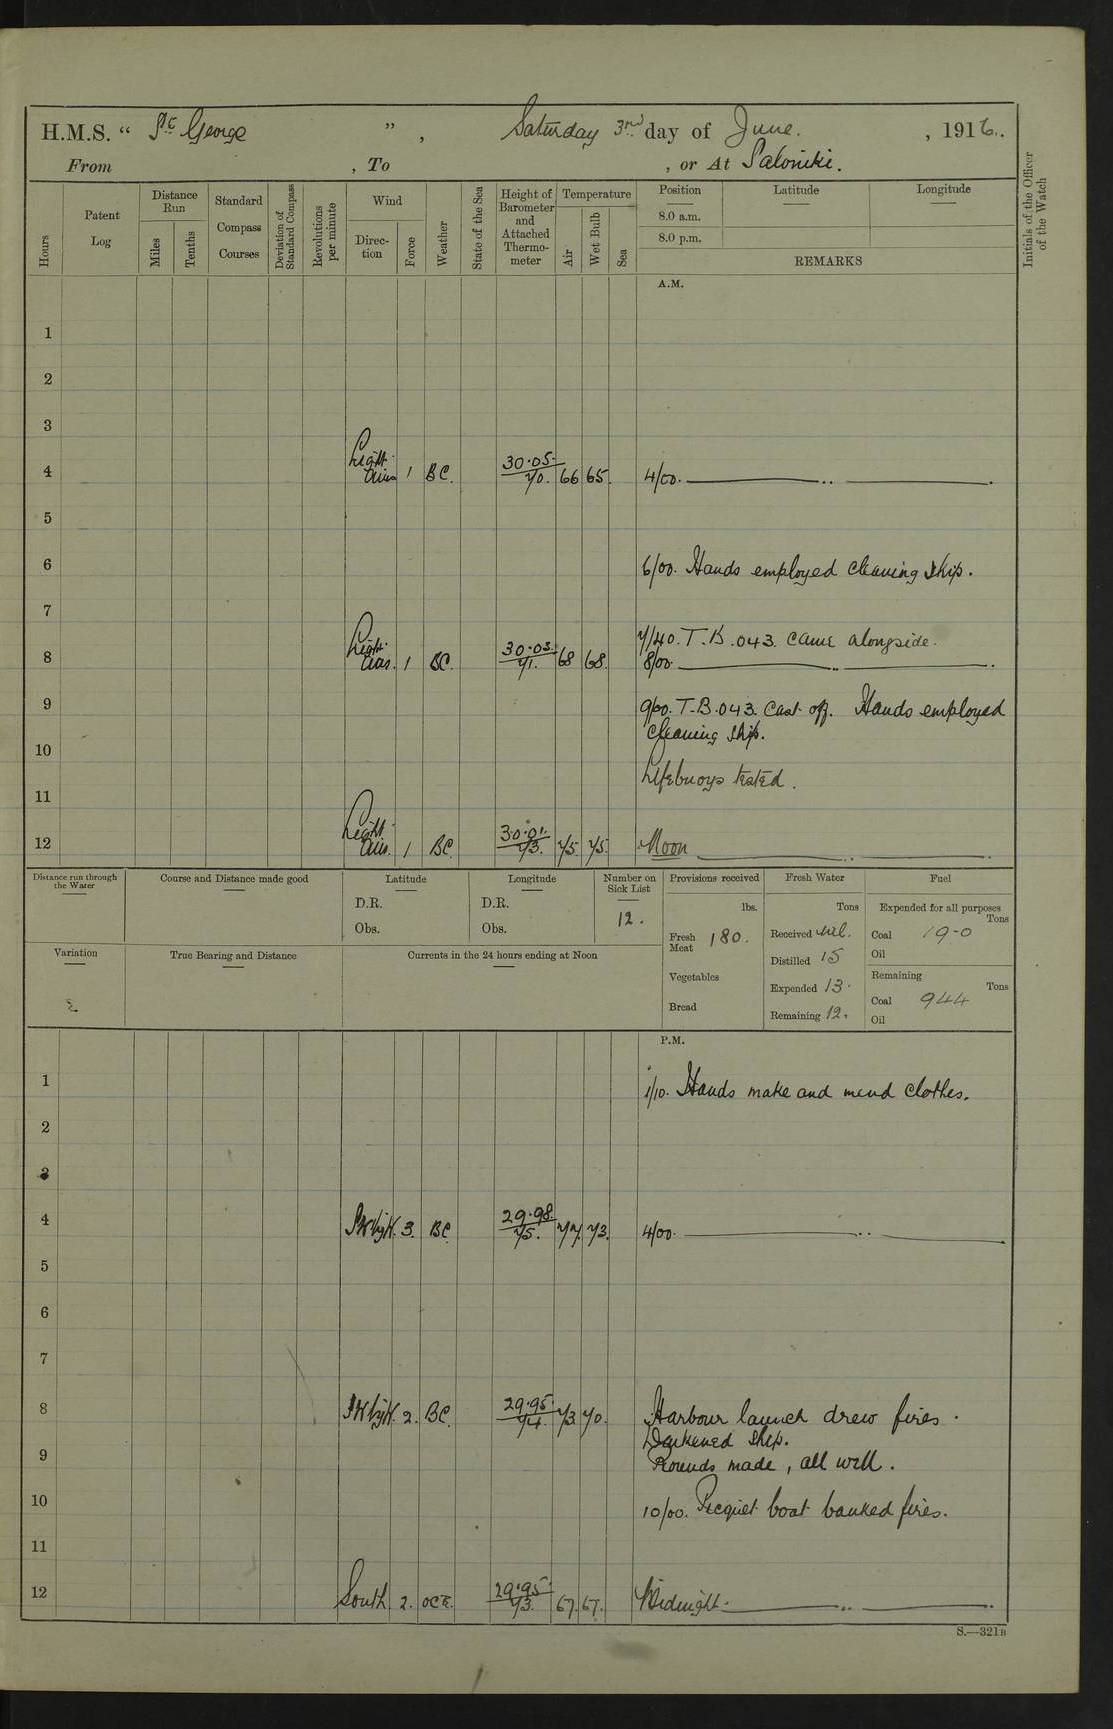 H.M.S. “ St George ” , Saturday 3rd day of June. , 1916.
From , To , or At Salonika.
Hours
Patent Log
Distance Run
Miles
Tenths
Standard Compass Courses
Deviation of Standard Compass
Revolutions per minute
Wind
Direc-tion
Force
Weather
State of the Sea
Height of Barometer and Attached Thermo-meter
Temperature
Air
Wet Bulb
Sea
Position
8.0 a.m.
8.0 p.m.
Latitude
Longitude
REMARKS
Initials of the Officer of the Watch
A.M.
1
2
3
4 Light airs 1 BC. 30.05. 70. 66 65. 4/00.
5
6 6/00. Hands employed cleaning ship.
7
7/40. T.B. 043. came alongside.
8 Light airs. 1 BC. 30.03. 71. 68 68. 8/00.
9 9/00. T.B. 043. Cast off. Hands employed
cleaning ship.
10
Lifebuoys tested.
11
12 Light airs. 1 BC. 30.01. 73. 75. 75. Noon
Distance run through the Water
Course and Distance made good
Latitude
D.R.
Obs.
Longitude
D.R.
Obs.
Number on Sick List
12.
Provisions received
lbs.
Fresh Meat 180.
Vegetables
Bread
Fresh Water
Tons
Received nil.
Distilled 15
Expended 13.
Remaining 12.
Fuel
Expended for all purposes
Tons
Coal 19-0
Oil
Remaining
Tons
Coal 944
Oil
Variation
True Bearing and Distance
Currents in the 24 hours ending at Noon
P.M.
1 1/10. Hands make and mend clothes.
2
3
4 3. BC. 29.98. 75. 77. 73. 4/00.
5
6
7
8 2. BC. 29.95. 74. 73 70. Harbour launch drew fires.
Darkened ship.
9 Rounds made, all well.
10 10/00. Picquet boat banked fires.
11
12 South 2. 29.95. 73. 67. 67. Midnight.
S.—321B